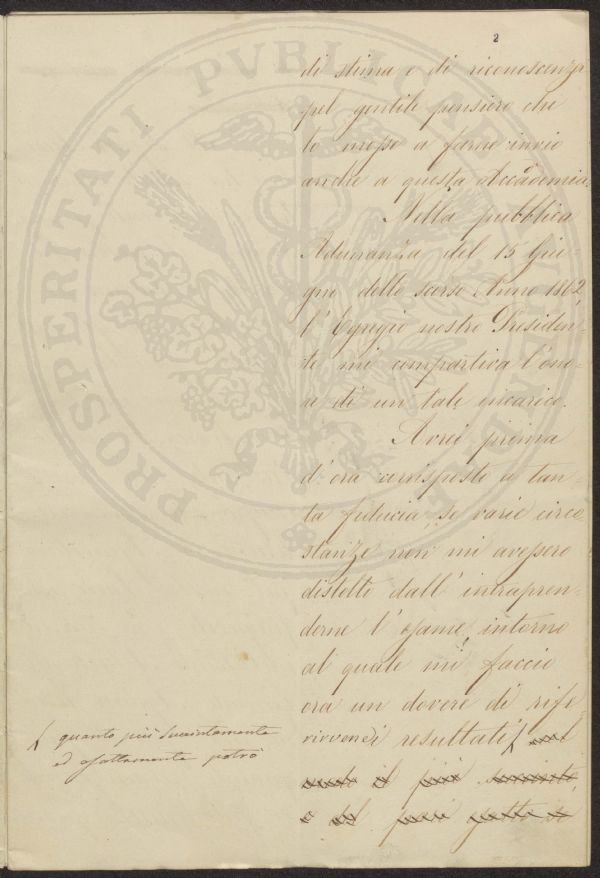 2
di stima e di riconoscenza
pel gentile pensiero che
lo mosse a farne invio
anche a questa Accademia.
Nella pubblica
Adunanza del 15 Giu-
gno dello scorso Anno 1862,
l'Egregio nostro Presiden-
te mi compartiva l'ono-
re di un tale incarico.
Avrei prima
d'ora corrisposto a tan-
ta fiducia, se varie circo
stanze non mi avessero
distolto dall'intrapren-
derne l'esame, intorno
al quale mi faccio
ora un dovere di rife
rirvene i resultati
quanto più succintamente
ed esattamente potrò
il più
e del pari
PROSPERITATI PVBLICAE